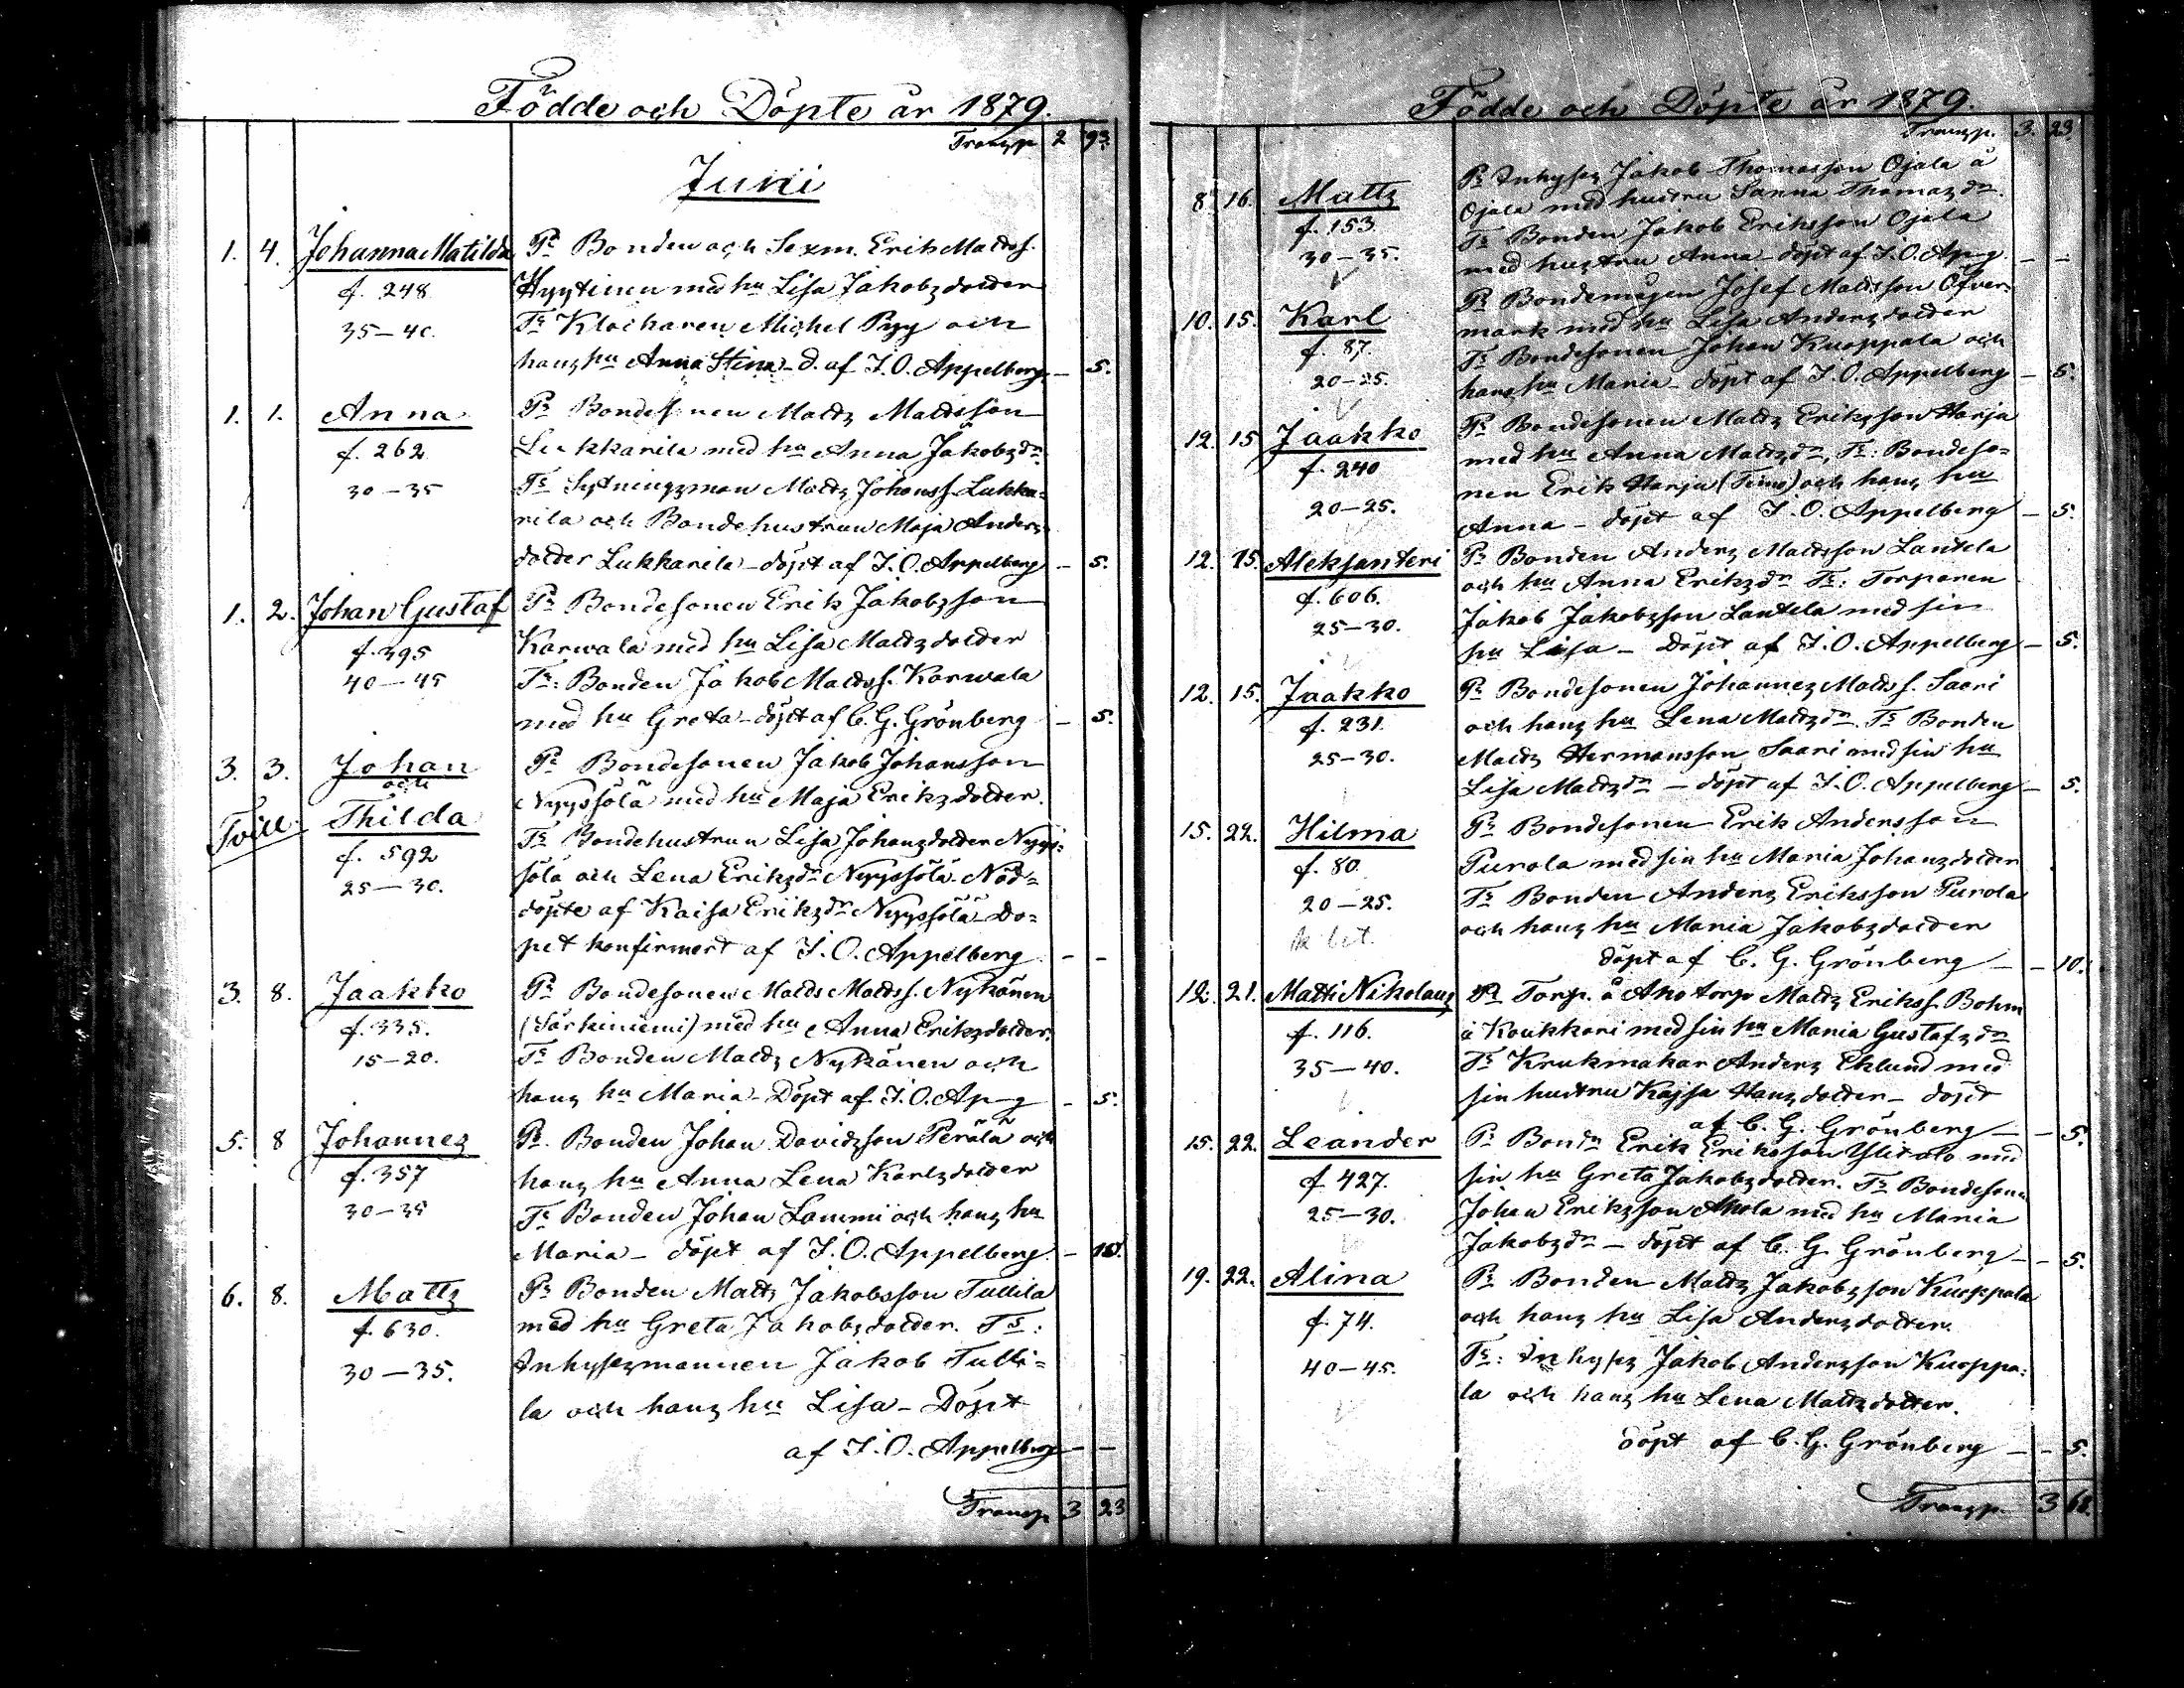 Födde och Döpte år 1879.
Transp. 2 93.
Juni
1. 4. Johanna Matilda Pr Bonden och Sexm. Erik Mattss.
f. 248 Hyytinen med hu Lisa Jakobsdotter
35–40. Ts Klockaren Michel Pyy och
hans hu Anna Stina – d. af J. O. Appelberg – 5.
1. 1. Anna Pr Bondesonen Matts Mattsson
f. 262 Lukkarila med hu Anna Jakobsdr
30–35 Ts Sytningsman Matts Johanss. Lukka=
rila och Bondehustrun Maja Anders=
dotter Lukkarila – döpt af J. O. Appelberg – 5.
1. 2. Johan Gustaf Pr Bondesonen Erik Jakobsson
f. 395 Karvala med hu Lisa Mattsdotter
40–45 Ts: Bonden Jakob Mattss. Karvala
med hu Greta – döpt af C. G. Grönberg – 5.
3. 3. Johan Pr Bondesonen Jakob Johansson
och Nyyssölä med hu Maja Eriksdotter.
Tvill. Thilda Ts Bondehustrun Lisa Johansdotter Nyys=
f. 592 sölä och Lena Eriksdr Nyyssölä. Nöd=
25–30. döpte af Kaisa Eriksdr Nyyssölä – Do=
pet konfirmert af J. O. Appelberg – –
3. 8. Jaakko Pr Bondesonen Matts Mattss. Nykänen
f. 335. (Särkiniemi) med hu Anna Eriksdotter.
15–20. Ts Bonden Matts Nykänen och
hans hu Maria – Döpt af J. O. Ap–g – 5.
5. 8 Johannes Pr. Bonden Johan Davidsson Perälä och
f. 357 hans hu Anna Lena Karlsdotter
30–35 Ts Bonden Johan Lammi och hans hu
Maria – döpt af J. O. Appelberg – 10.
6. 8. Matts Pr Bonden Matts Jakobsson Tullila
f. 630. med hu Greta Jakobsdotter. Ts:
30–35. Inhysesmannen Jakob Tulli=
la och hans hu Lisa – Döpt
af J. O. Appelberg – –
Transp. 3 23
Födde och Döpte år 1879.
Transp. 3. 23
8. 16. Matts Pr Inhyses Jakob Thomasson Ojala å
Ojala med hustru Sanna Thomasdr.
f. 153. Ts Bonden Jakob Eriksson Ojala
30–35. med hustru Anna – döpt af J. O. Ap–g – –
10. 15. Karl Pr Bondemågen Josef Mattsson Öfver=
mark med hu Lisa Andersdotter
f. 87. Ts Bondesonen Johan Kuoppala och
20–25. hans hu Maria – döpt af J. O. Appelberg – 5.
12. 15 Jaakko Pr Bondesonen Matts Eriksson Harja
f. 240 med hu Anna Mattsdr, Ts: Bondeso=
nen Erik Harja och hans hu
20–25. Anna – döpt af J. O. Appelberg – 5.
12. 15. Aleksanteri Pr Bonden Anders Mattsson Lantela
f. 606. och hu Anna Eriksdr Ts: Torparen
25–30. Jakob Jakobsson Lantela med sin
hu Lisa – Döpt af J. O. Appelberg – 5.
12. 15. Jaakko Pr Bondesonen Johannes Mattss. Saari
f. 231. och hans hu Lena Mattsdr. Ts Bonden
25–30. Matts Hermansson Saari med sin hu
Lisa Mattsdr – döpt af J. O. Appelberg – 5.
15. 22. Hilma Pr Bondesonen Erik Andersson
f. 80. Purola med sin hu Maria Johansdotter
20–25. Ts Bonden Anders Eriksson Purola
och hans hu Maria Jakobsdotter
döpt af C. G. Grönberg – – 10.
12. 21. Matti Nikolaus Pr Torp. å Aho torp Matts Erikss. Bohm
f. 116. å Koukkari med sin hu Maria Gustafsdr
35–40. Ts Krukmakar Anders Eklund med
sin hustru Kajsa Hansdotter – döpt
af C. G. Grönberg – – 5.
15. 22. Leander Pr Bondn Erik Eriksson Ylitalo med
f. 427. sin hu Greta Jakobsdotter. Ts Bondesonen
25–30. Johan Eriksson Ahola med hu Maria
Jakobsdr – döpt af C. G. Grönberg – – 5.
19. 22. Alina Pr Bonden Matts Jakobsson Kuoppala
f. 74. och hans hu Lisa Andersdotter.
40–45. Ts: Inhyses Jakob Andersson Kuoppa=
la och hans hu Lena Mattsdotter.
döpt af C. G. Grönberg – – 5.
Transp. 3 68.